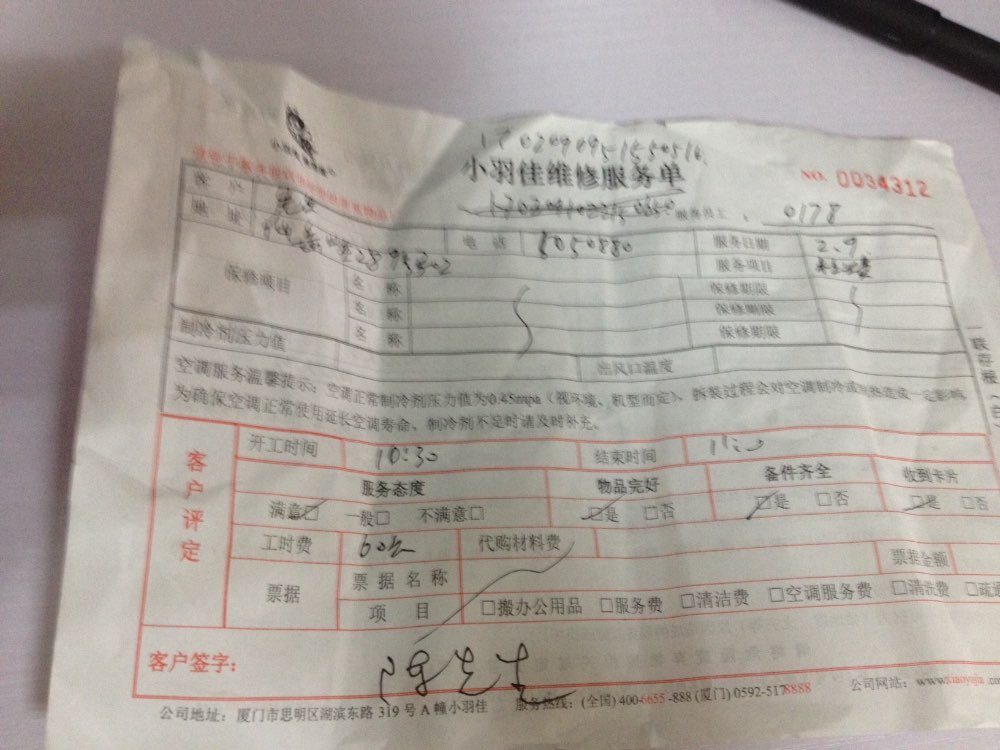 17020909515508
小羽佳维修服务单
NO. 0034312
服务员工： 0178
客户
地址 2895202
电话 5050880
服务日期 2.9.
服务项目
保修项目 名称 保修期限
名称 保修期限
名称 保修期限
制冷剂压力值 出风口温度
空调服务温馨提示：空调正常制冷剂压力值为0.45mpa（视环境、机型而定）、拆装过程会对空调制冷或制热造成一定影响
为确保空调正常使用延长空调寿命、制冷剂不足时请及时补充。
一联存根（白）
客户评定
开工时间 10:30 结束时间 11:00
服务态度 物品完好 备件齐全 收到卡片
满意☑ 一般□ 不满意□ ☑是 □否 ☑是 □否 ☑是 □否
工时费 60元 代购材料费
票据 票据名称 票据金额
项目 □搬办公用品 □服务费 □清洁费 □空调服务费 □清洗费 □疏
客户签字： 陈先生
公司地址：厦门市思明区湖滨东路 319 号 A 幢小羽佳 服务热线：(全国) 400-6655-888 (厦门) 0592-5178888 公司网站：www.xiaoyujia.com